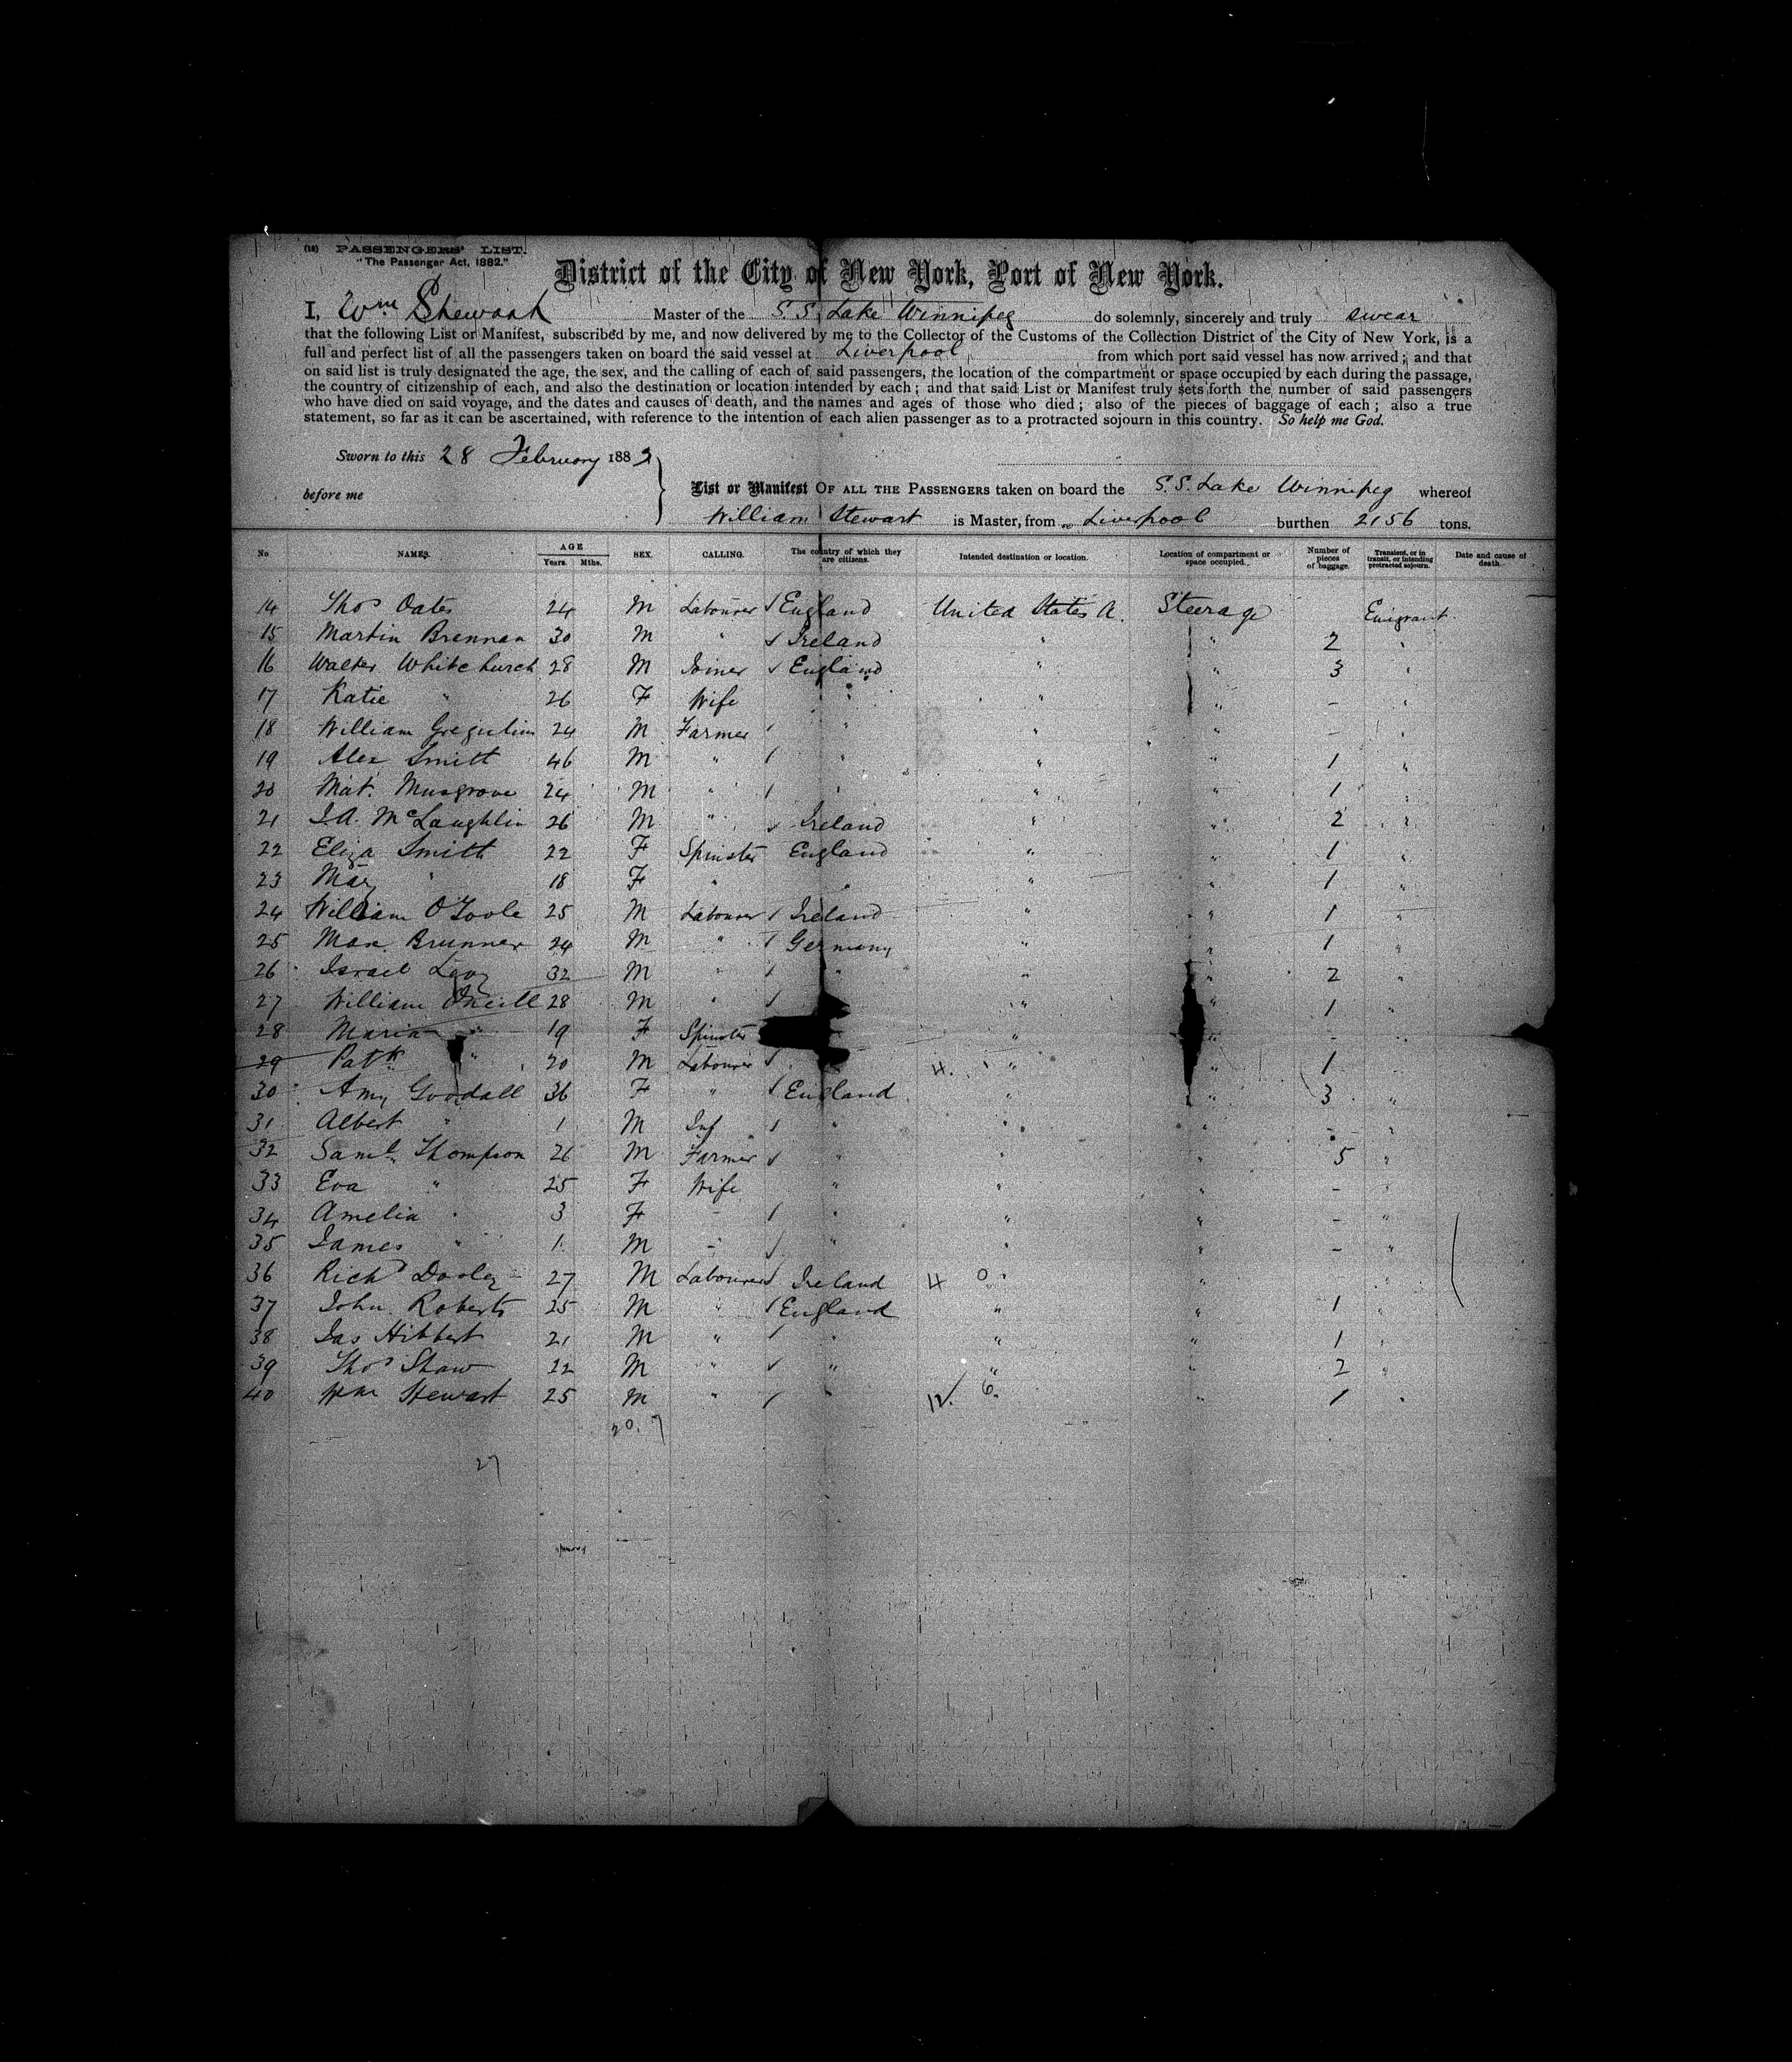 (18) PASSENGERS' LIST.
"The Passenger Act, 1882."
District of the City of New York, Port of New York.
I, Wm Stewart Master of the S.S. Lake Winnipeg do solemnly, sincerely and truly swear
that the following List or Manifest, subscribed by me, and now delivered by me to the Collector of the Customs of the Collection District of the City of New York, is a
full and perfect list of all the passengers taken on board the said vessel at Liverpool from which port said vessel has now arrived; and that
on said list is truly designated the age, the sex, and the calling of each of said passengers, the location of the compartment or space occupied by each during the passage,
the country of citizenship of each, and also the destination or location intended by each; and that said List or Manifest truly sets forth the number of said passengers
who have died on said voyage, and the dates and causes of death, and the names and ages of those who died; also of the pieces of baggage of each; also a true
statement, so far as it can be ascertained, with reference to the intention of each alien passenger as to a protracted sojourn in this country. So help me God.
Sworn to this 28 February 188
before me
List or Manifest OF ALL THE PASSENGERS taken on board the S.S. Lake Winnipeg whereof
William Stewart is Master, from Liverpool burthen 2156 tons.
No NAMES. AGE Years. Mths. SEX. CALLING. The country of which they are citizens. Intended destination or location. Location of compartment or space occupied. Number of pieces of baggage. Transient, or in transit, or intending protracted sojourn. Date and cause of death.
14 Thos Oates 24 M Labourer England United States A. Steerage Emigrant
15 Martin Brennan 30 M " Ireland " " 2 "
16 Walter Whitchurch 28 M Joiner England " " 3 "
17 Katie " 26 F Wife " " " - "
18 William 24 M Farmer " " " - "
19 Alex Smith 46 M " " " " 1 "
20 Mat. Musgrove 24 M " " " " 1 "
21 J.A. McLaughlin 26 M " Ireland " " 2 "
22 Eliza Smith 22 F Spinster England " " 1 "
23 Mary " 18 F " " " " 1 "
24 William O'Toole 25 M Labourer Ireland " " 1 "
25 Max Brunner 24 M " Germany " " 1 "
26 Israel Levy 32 M " " " " 2 "
27 William O'Neill 28 M " " " 1 "
28 Maria " 19 F Spinster " " - "
29 Patk " 20 M Labourer 4. " " 1 "
30 Amy Goodall 36 F " England " " 3 "
31 Albert " 1 M Inf " " " - "
32 Saml. Thompson 26 M Farmer " " " 5 "
33 Eva " 25 F Wife " " " - "
34 Amelia " 3 F - " " " - "
35 James " 1 M - " " " - "
36 Richd Dooley 27 M Labourer Ireland 4 0 " "
37 John Roberts 25 M " England " " 1 "
38 Jas Hibbert 21 M " " " " 1 "
39 Thos Shaw 22 M " " " " 2 "
40 Wm Stewart 25 M " " 12/ 6. " 1 "
20. 7
27